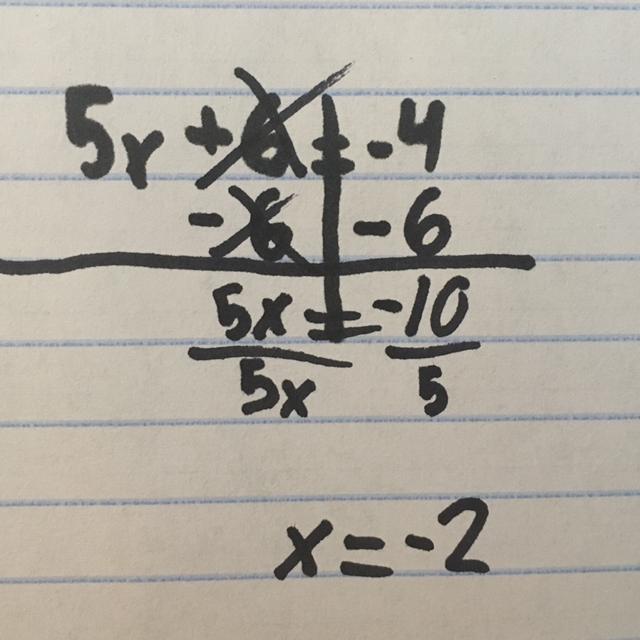 5x + 6 = -4
- 6 - 6
5x = -10
5x 5
x = -2